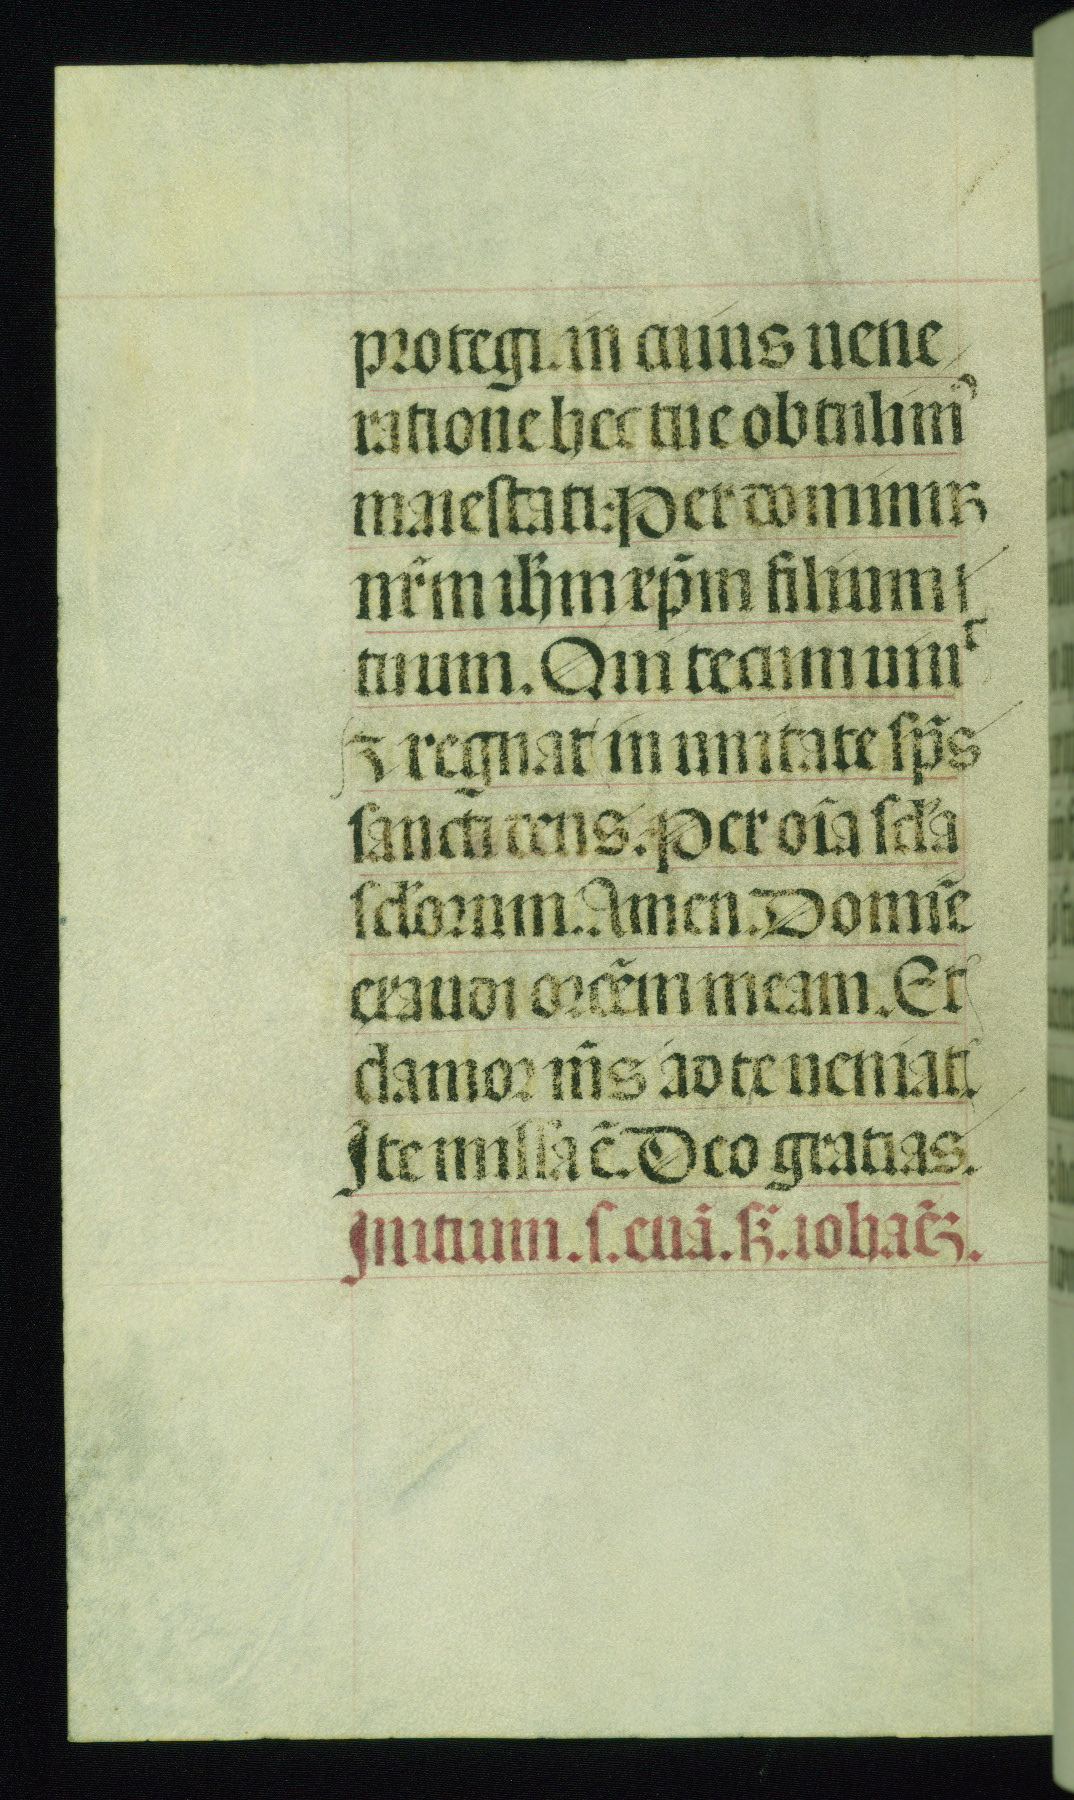 protegi. in cuius uene
ratione hec tue obtulimꝰ
maiestati: Per dominuꝫ
nr̄m ih̄m xp̄m filium
tuum. Qui tecum uiuᵗ
⁊ regnat in unitate sp̄s
sancti deus. Per oīa sc̄la
sc̄lorum. Amen. Domīe
exaudi or̄oēm meam. Et
clamor m̄s ad te ueniat.
Ite missa ē. Deo gratias.
Initium. s. euā. ſꝫ. iohaēꝫ.